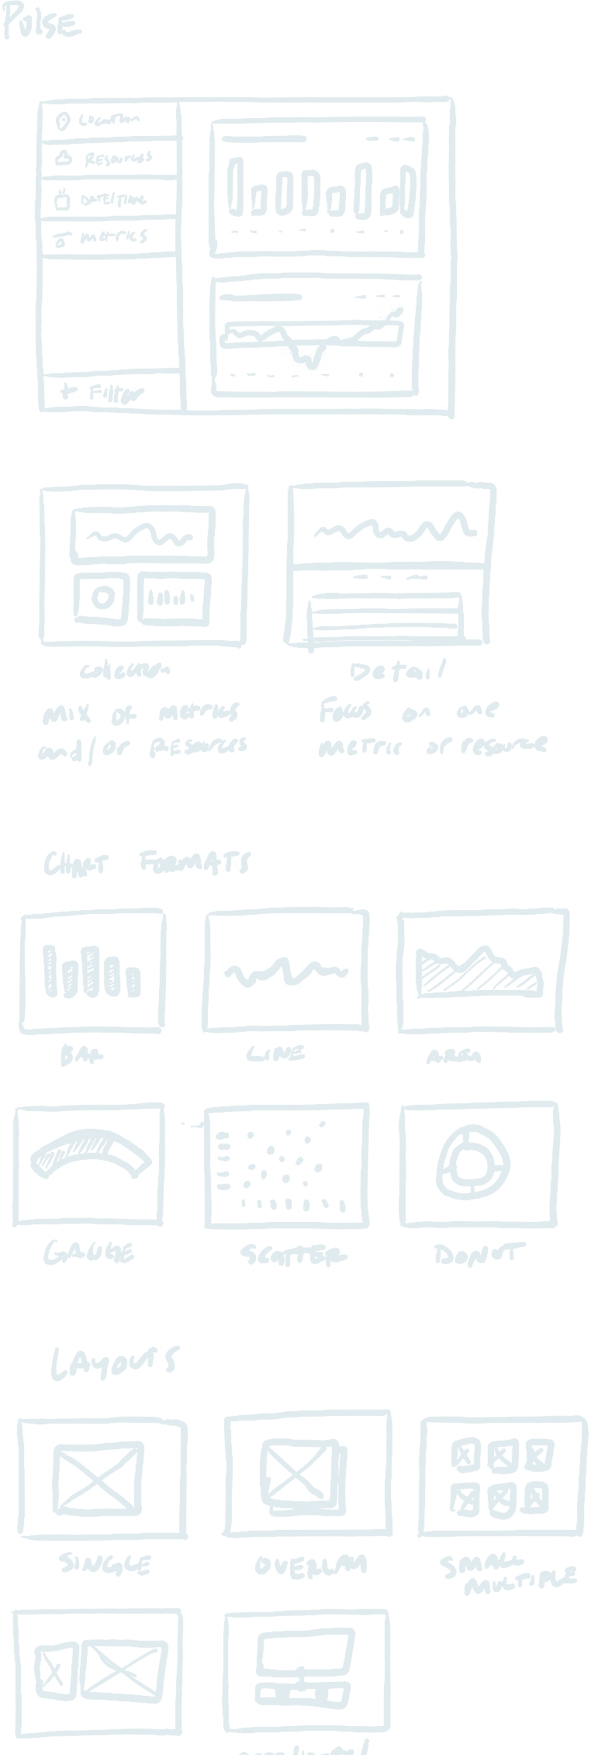 Pulse
Location
Resources
Date/Time
Metrics
+ Filter
Collection
Mix of metrics
and/or Resources
Detail
Focus on one
metric or resource
Chart Formats
Bar
Line
Area
Gauge
Scatter
Donut
Layouts
Single
Overlay
Small
Multiple